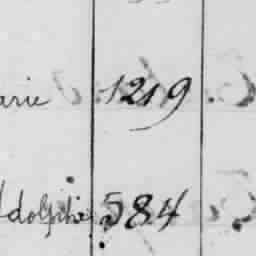 arie 1219
Adolphe 584